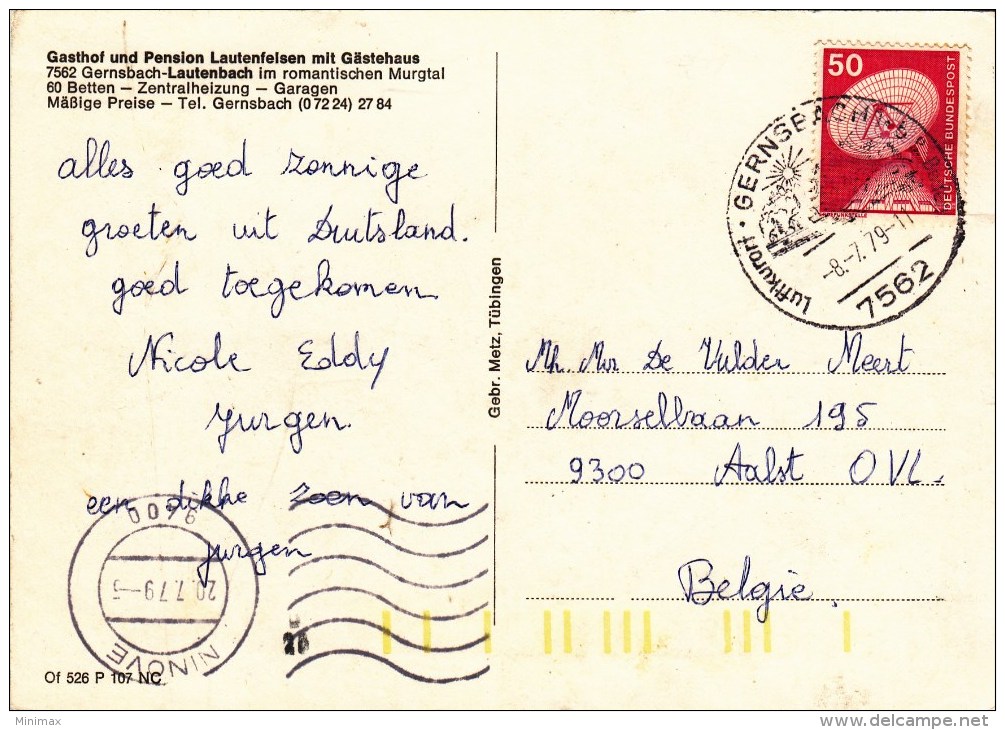 Gasthof und Pension Lautenfelsen mit Gästehaus
7562 Gernsbach-Lautenbach im romantischen Murgtal
60 Betten – Zentralheizung – Garagen
Mäßige Preise – Tel. Gernsbach (0 72 24) 27 84
alles goed zonnige
groeten uit Duitsland.
goed toegekomen
Nicole Eddy
Jurgen.
een dikke zoen van
jurgen
Gebr. Metz, Tübingen
50
DEUTSCHE BUNDESPOST
Luftkurort · GERNSBACH
-8.-7.79-11
7562
Mh. Mvr De Vulder Meert
Moorselbaan 195
9300 Aalst OVL.
België.
9400
20.7.79-5
NINOVE
Of 526 P 107 NC
Minimax
www.delcampe.net